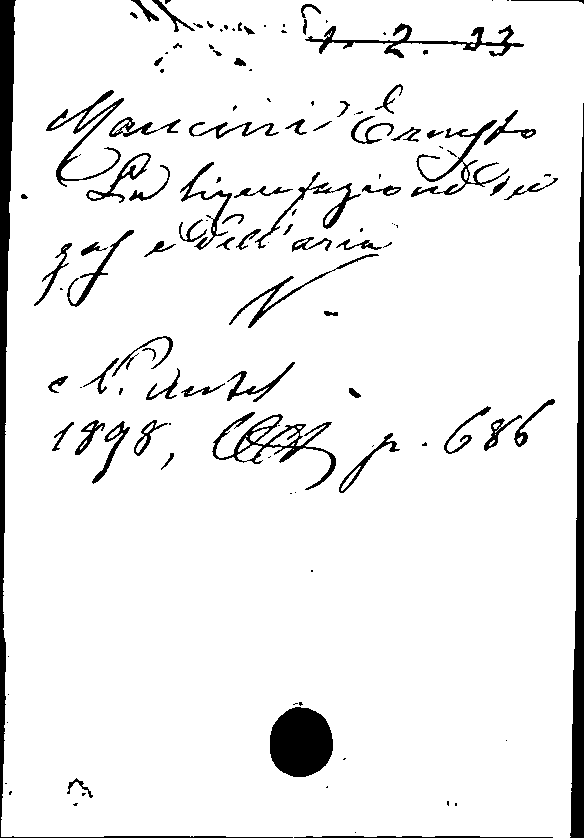 1. 2. 33
Mancini Ernesto
La liquefazione dei
gas e dell'aria
N. Antol
1898, p. 686